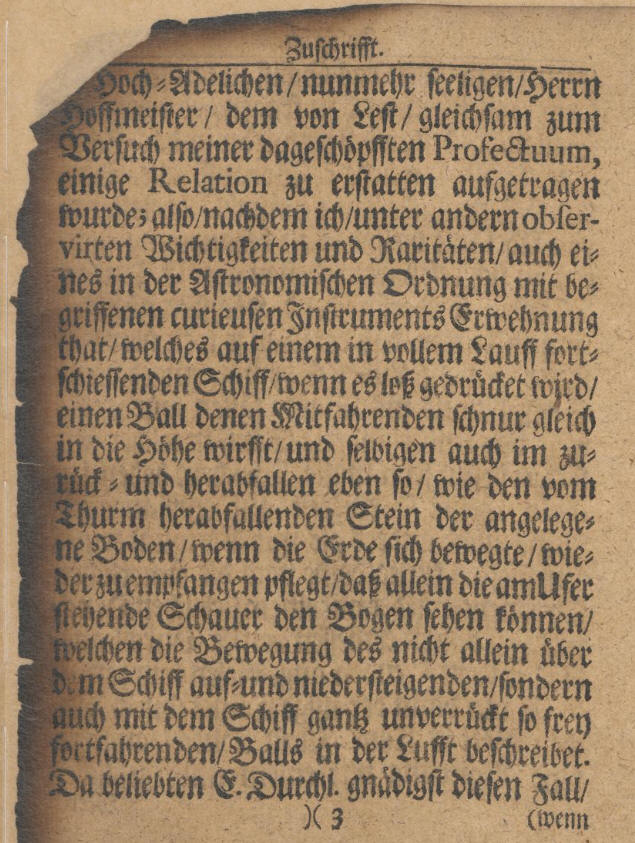 Zuſchrifft.
Hoch⸗Adelichen/nunmehr ſeeligen/Herrn
Hoffmeiſter/ dem von Leſt/ gleichſam zum
Verſuch meiner dageſchöpfften Profectuum,
einige Relation zu erſtatten aufgetragen
wurde; alſo/nachdem ich/unter andern obſer-
virten Wichtigkeiten und Raritäten/auch ei⸗
nes in der Aſtronomiſchen Ordnung mit be⸗
griffenen curieuſen Inſtruments Erwehnung
that/welches auf einem in vollem Lauff fort⸗
ſchieſſenden Schiff/wenn es loß gedrücket wird/
einen Ball denen Mitfahrenden ſchnur gleich
in die Höhe wirfft/und ſelbigen auch im zu⸗
rück⸗und herabfallen eben ſo/ wie den vom
Thurm herabfallenden Stein der angelege⸗
ne Boden/wenn die Erde ſich bewegte/wie⸗
der zu empfangen pflegt/daß allein die am Ufer
ſtehende Schauer den Bogen ſehen können/
welchen die Bewegung des nicht allein über
dem Schiff auf⸗und niederſteigenden/ſondern
auch mit dem Schiff gantz unverrückt ſo frey
fortfahrenden/Balls in der Lufft beſchreibet.
Da beliebten E. Durchl. gnädigſt dieſen Fall/
)( 3 (wenn